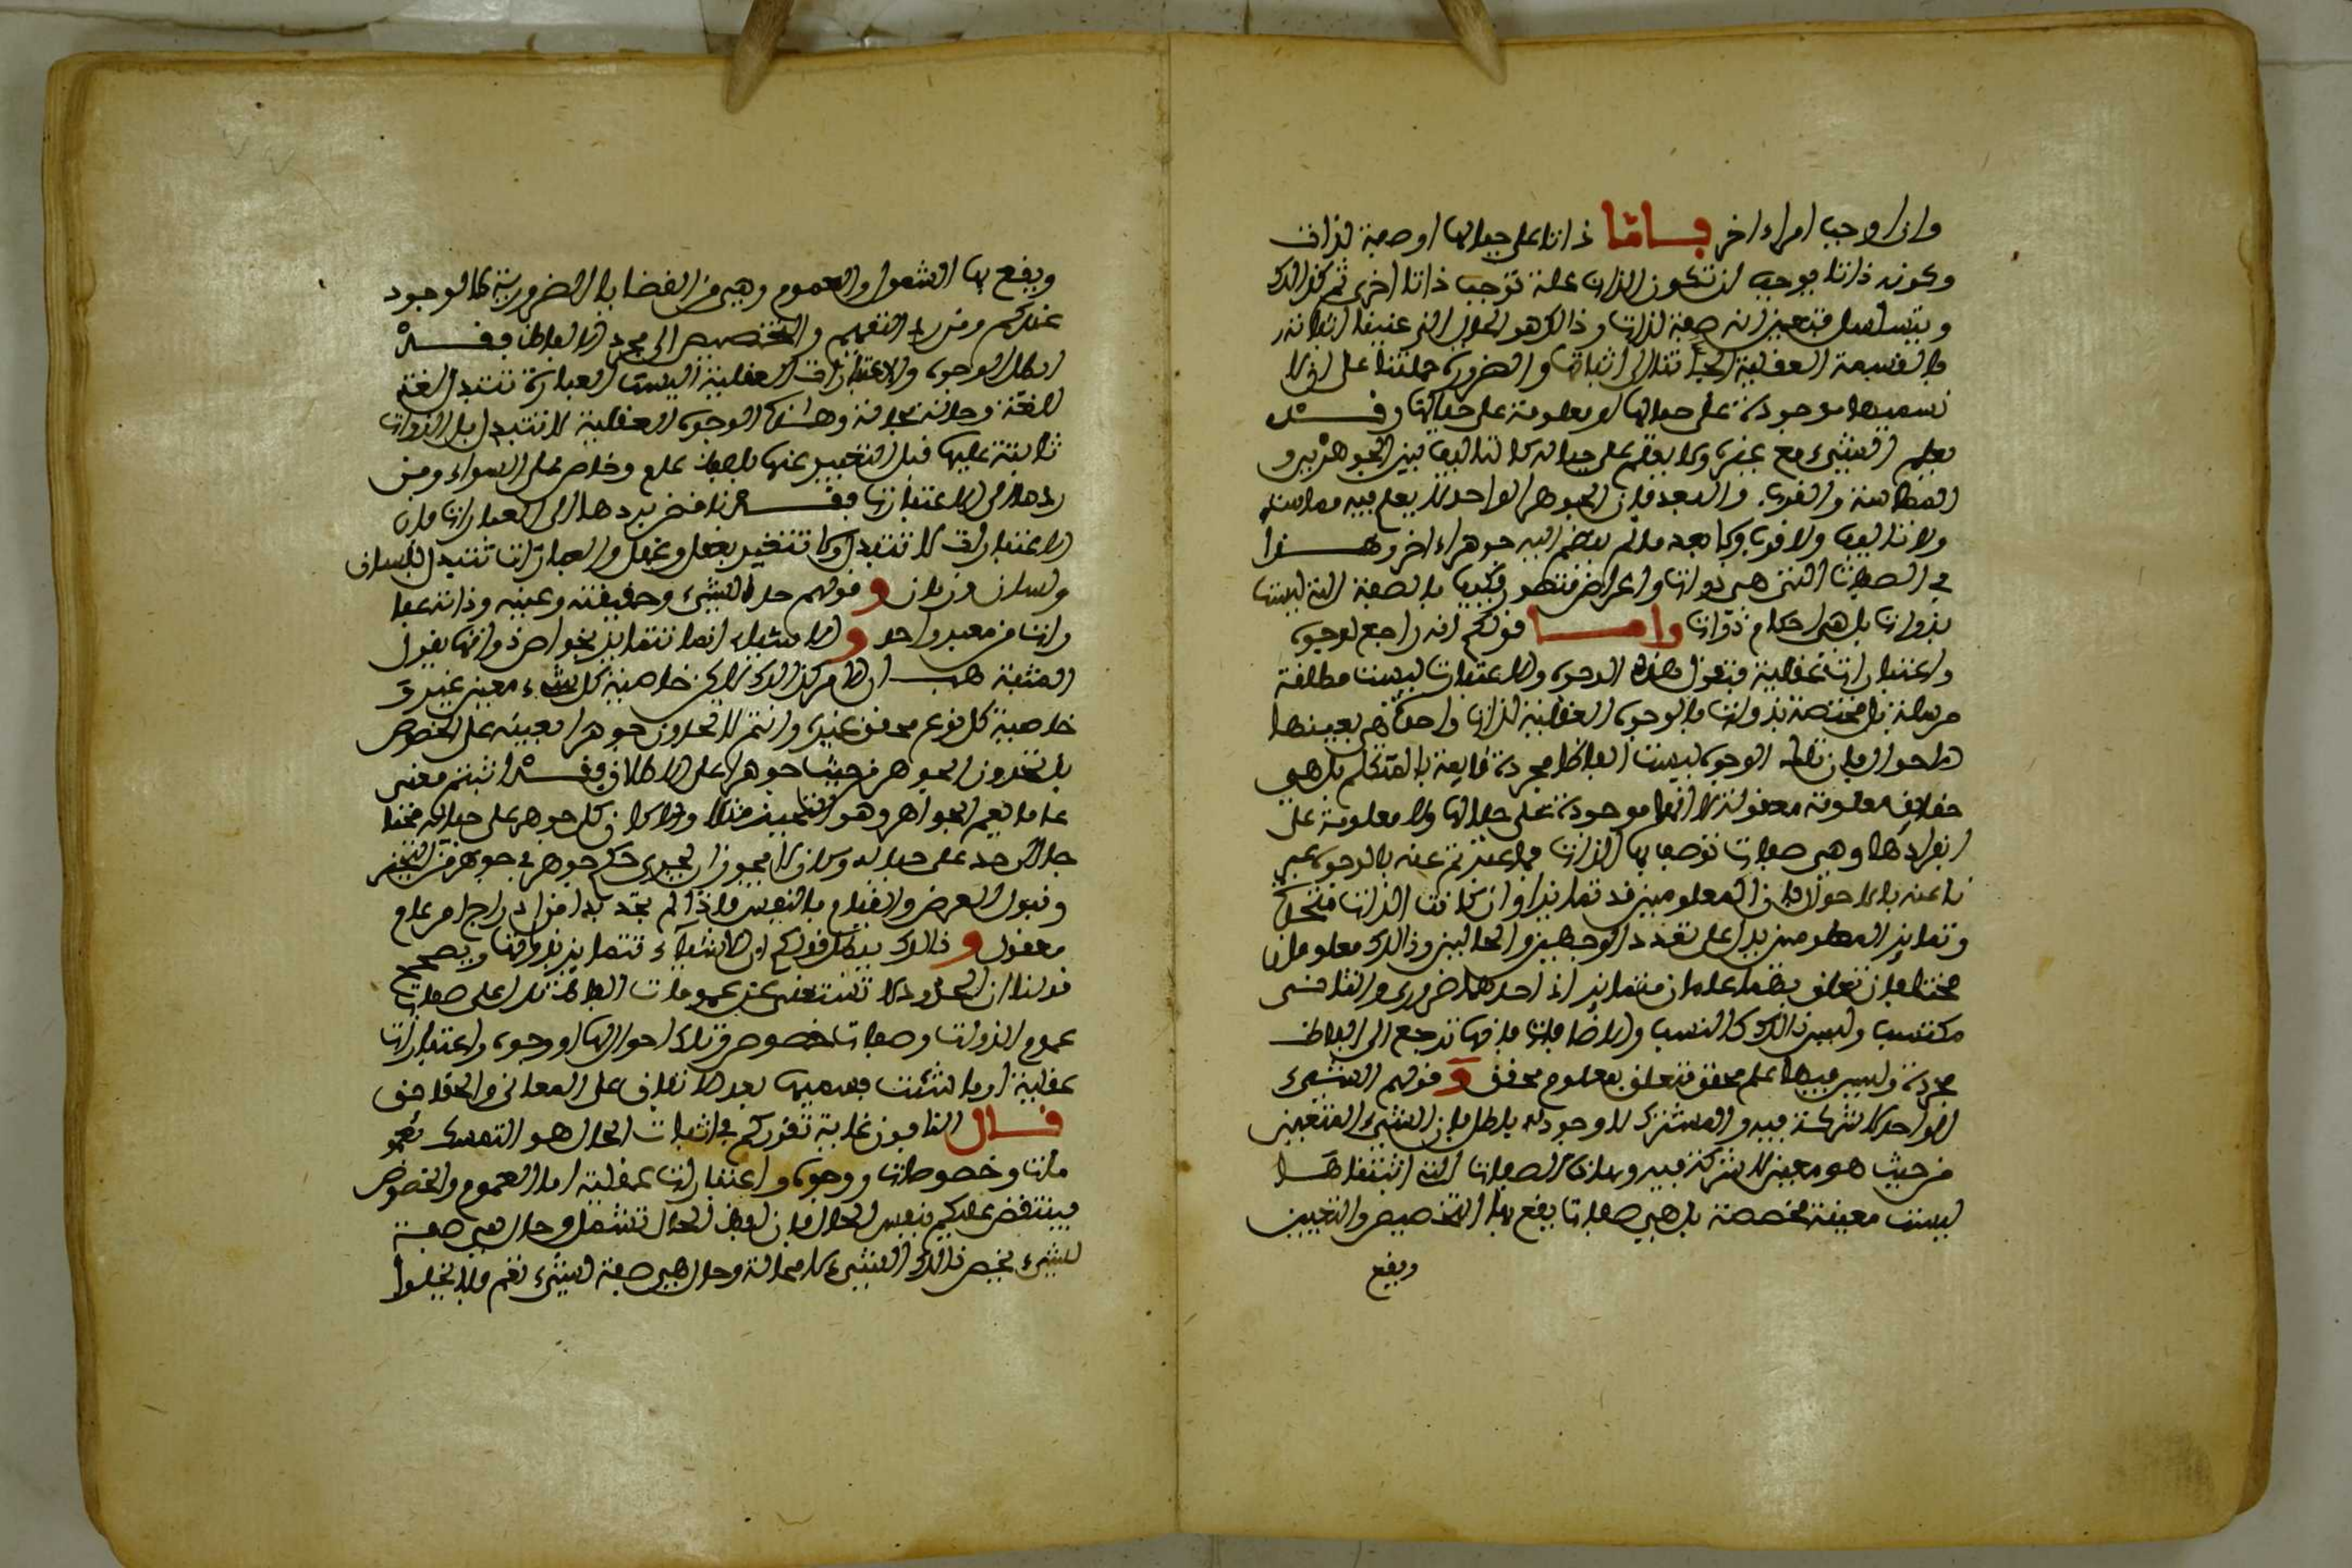 وان اوجب امراء اخر فاما ذاتا على حيالها او صفة لذات
وكونه ذاتا يوجب ان تكون الذات علة توجب ذاتا اخرى ثم كذالك
ويتسلسل فتعين انه صفة لذات وذالك هو الحال التي عنينا اثباته
فالقسمة العقلية الجأتنا الى اثباتها والضرورة حملتنا على ان لا
نسميها موجودة على حيالها او معلومة على حيالها وقد
يعلم الشيء مع غيره ولا يعلم على حياله كالتاليف بين الجوهرين و
المماسة والقرب والبعد فان الجوهر الواحد لا يعلم فيه مماسة
ولا تاليف ولا قرب ولا بعد ما لم ينضم اليه جوهر اخر وهذا
في الصفات التي هي ذوات واعراض متصور فكيف بالصفة التي ليست
بذوات بل هي احكام ذوات واما قولكم انه راجع لوجوه
واعتبارات عقلية فنقول هذه الوجوه والاعتبارات ليست مطلقة
مرسلة بل مختصة بذوات فالوجوه العقلية لذات واحدة هي بعينها
الاحوال فان تلك الوجوه ليست الفاظا مجردة قايمة بالمتكلم بل هي
حقايق معلومة معقولة لا انها موجودة على حيالها ولا معلومة على
انفرادها وهي صفات توصف بها الذات فما عبرتم عنه بالوجوه عبر
نا عنه بالاحوال فان المعلومين قد تمايزا وان كانت الذات متحدة
وتمايز المعلومين يدل على تعدد الوجهين والحالين وذالك معلومان
محققان تعلق بهما علمان متمايزان احدهما ضروري والثاني
مكتسب وليس ذالك كالنسب والاضافات فانها ترجع الى الفاظ
مجردة وليس فيها علم محقق متعلق بمعلوم محقق و قولهم الشيء
الواحد لا شركة فيه والمشترك لا وجود له باطل فان الشيء المتعين
من حيث هو معين لا شركة فيه وهذه الصفات التي اثبتناها
ليست معينة مخصصة بل هي صفات يقع بها التخصيص والتعيين
ويقع
ويقع بها الشمول والعموم وهي من القضايا الضرورية كالوجود
عندكم ومن رد التعميم والتخصيص الى مجرد الالفاظ فقد
ابطل الوجوه والاعتبارات العقلية اليست العبارة تتبدل لغة
لغة وحالة بحالة وهذه الوجوه العقلية لا تتبدل بل الذوات
ثابتة عليها قبل التعبير عنها بلفظ عام وخاص على السواء ومن
ردها الى الاعتبارات فقد ناقض بردها الى العبارات فان
الاعتبارات لا تتبدل ولا تتغير بعقل وعقل والعبارات تتبدل بلسان
ولسان وزمان و قولهم حد الشيء وحقيقته وعينه وذاته عبا
رات من معبر واحد و الاشياء انما تتمايز بخواص ذواتها يقول
المثبة هب ان الامر كذالك لاكن خاصية كل شيء معين غير و
خاصية كل نوع محقق غير وانتم لا تحدون جوهرا بعينه على الخصوص
بل تحدون الجوهر من حيث جوهر على الاطلاق فقد اثبتم معنى
عاما يعم الجواهر وهو التحيز مثلا والا كان كل جوهر على حياله محتا
جا الى حد على حياله ولا يجوز ان يجرى حكم جوهر في جوهر من التحيز
وقبول العرض والقيام بالنفس فاذا لم نجد بدا من ادراج امر عام
معقول و ذالك يبطل قولكم ان الاشياء تتمايز بذواتها ويصحح
قولنا ان الحدود لا تستغنى عن عمومات الفاظ تدل على صفات
عموم الذوات وصفات خصوص وتلك احوال لها او وجوه واعتبارات
عقلية او ما شئت فسميها بعد الاتفاق على المعاني والحقايق
قال النافون غاية تقريركم في اثبات الحال هو التمسك بعمو
مات وخصوصات ووجوه واعتبارات عقلية اما العموم والخصوص
فينتقض عليكم بنفس الحال فان لفظ الحال تشمل وحال هي صفة
لشيء يخص ذالك الشيء لا محالة وحال هي صفة لشيء نعم فلا يخلوا